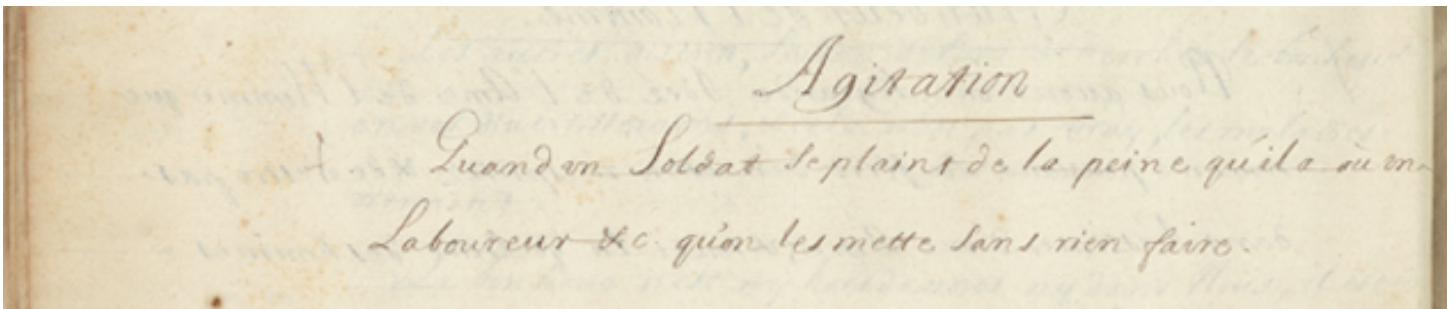 Agitation
Quand un Soldat se plaint de la peine qu'il a où un
Laboureur &c. qu'on les mette sans rien faire.